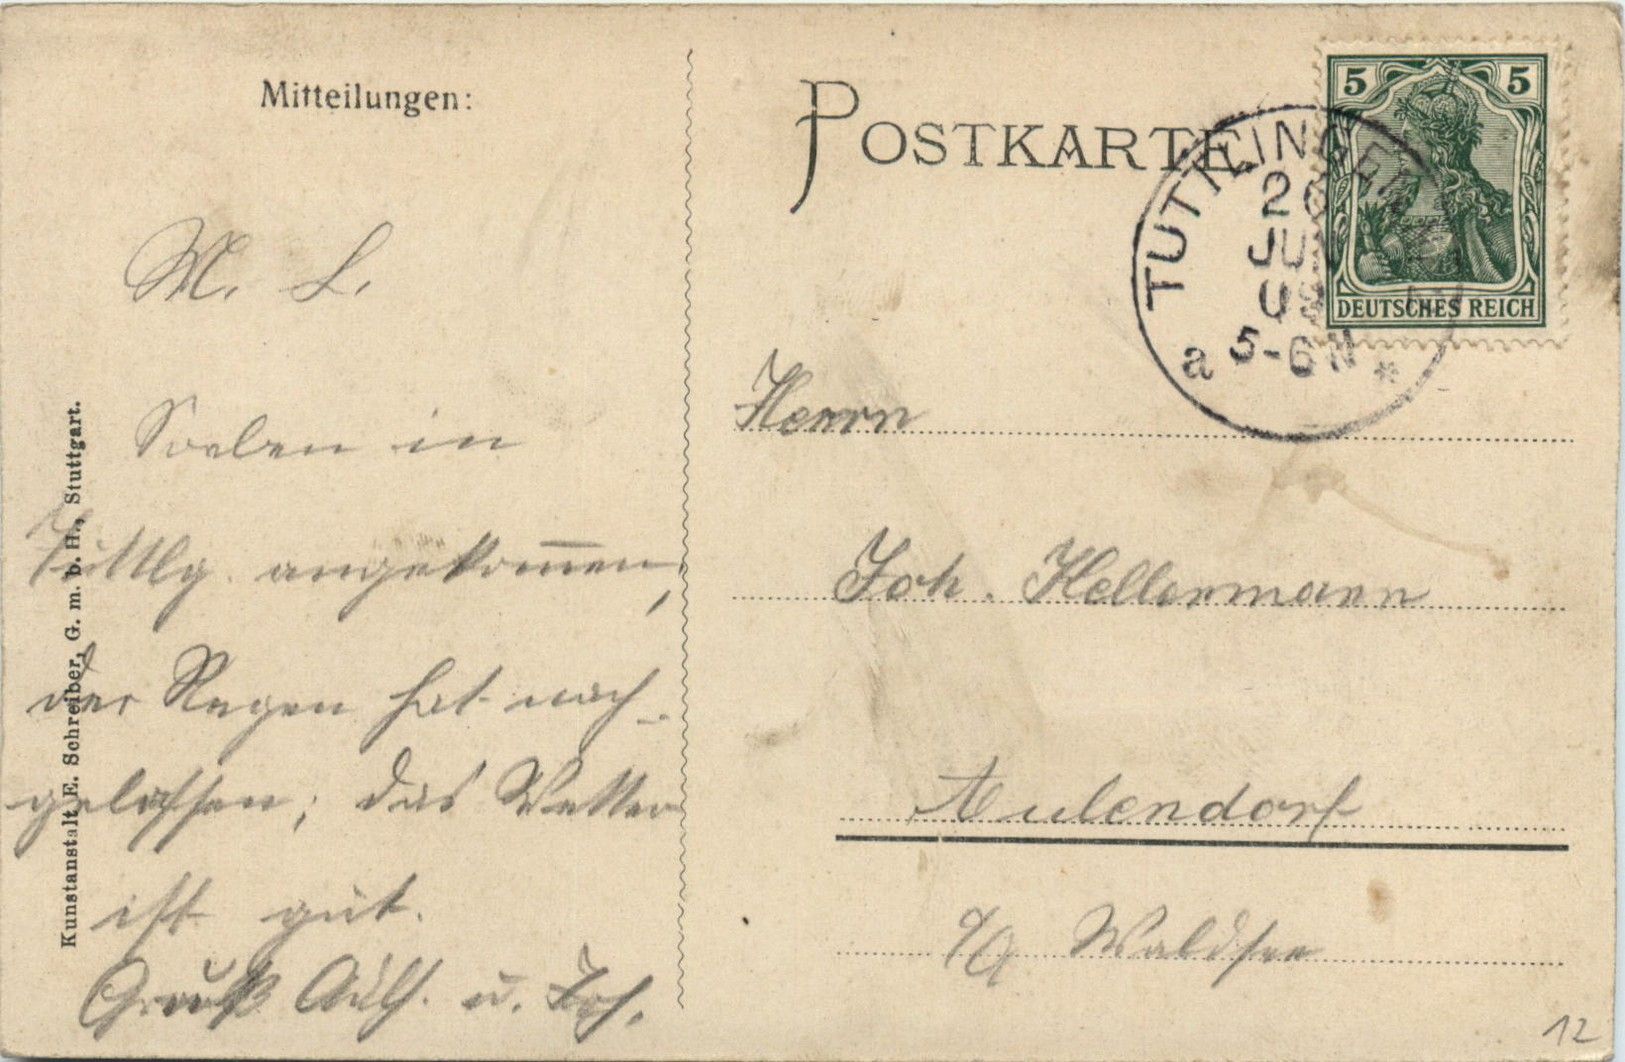 Mitteilungen:
M. L.
Soeben in
Tuttlg. angekommen,
der Regen hat nach-
gelassen; das Wetter
ist gut.
Gruß u. Joh.
Kunstanstalt E. Schreiber, G. m. b. H., Stuttgart.
POSTKARTE
5 5
DEUTSCHES REICH
TUTTLINGEN
26
JUN
09
5-6 N
a *
Herrn
Joh. Hellermann
Aulendorf
Waldsee
12